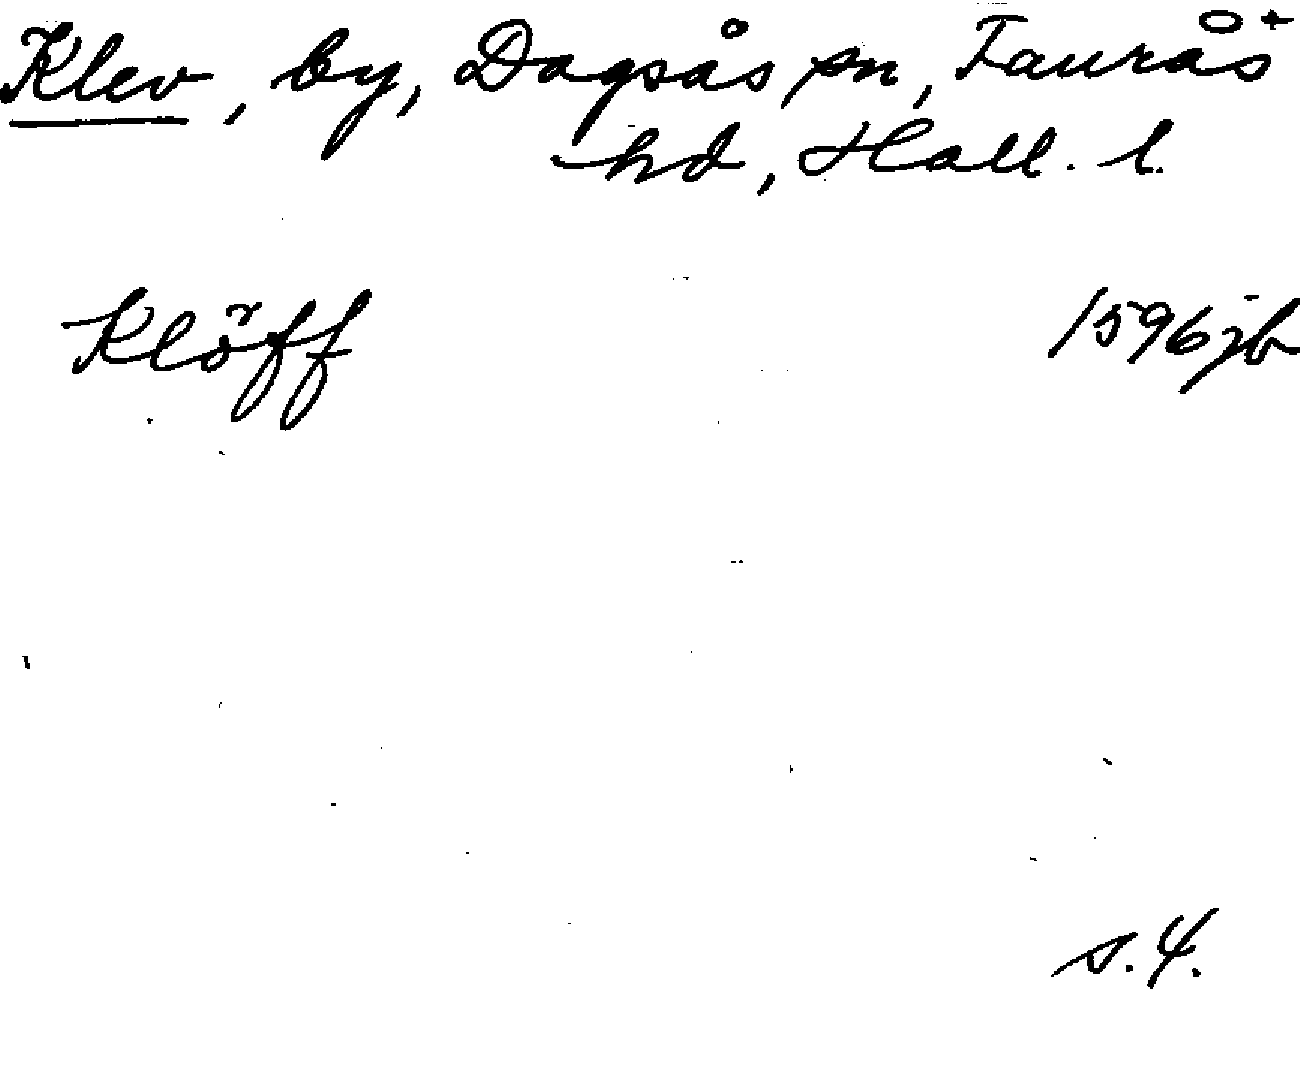 Klev, by, Dagsås sn, Faurås +
hd, Hall. l.
Klöff 1596 jb
s. 4.